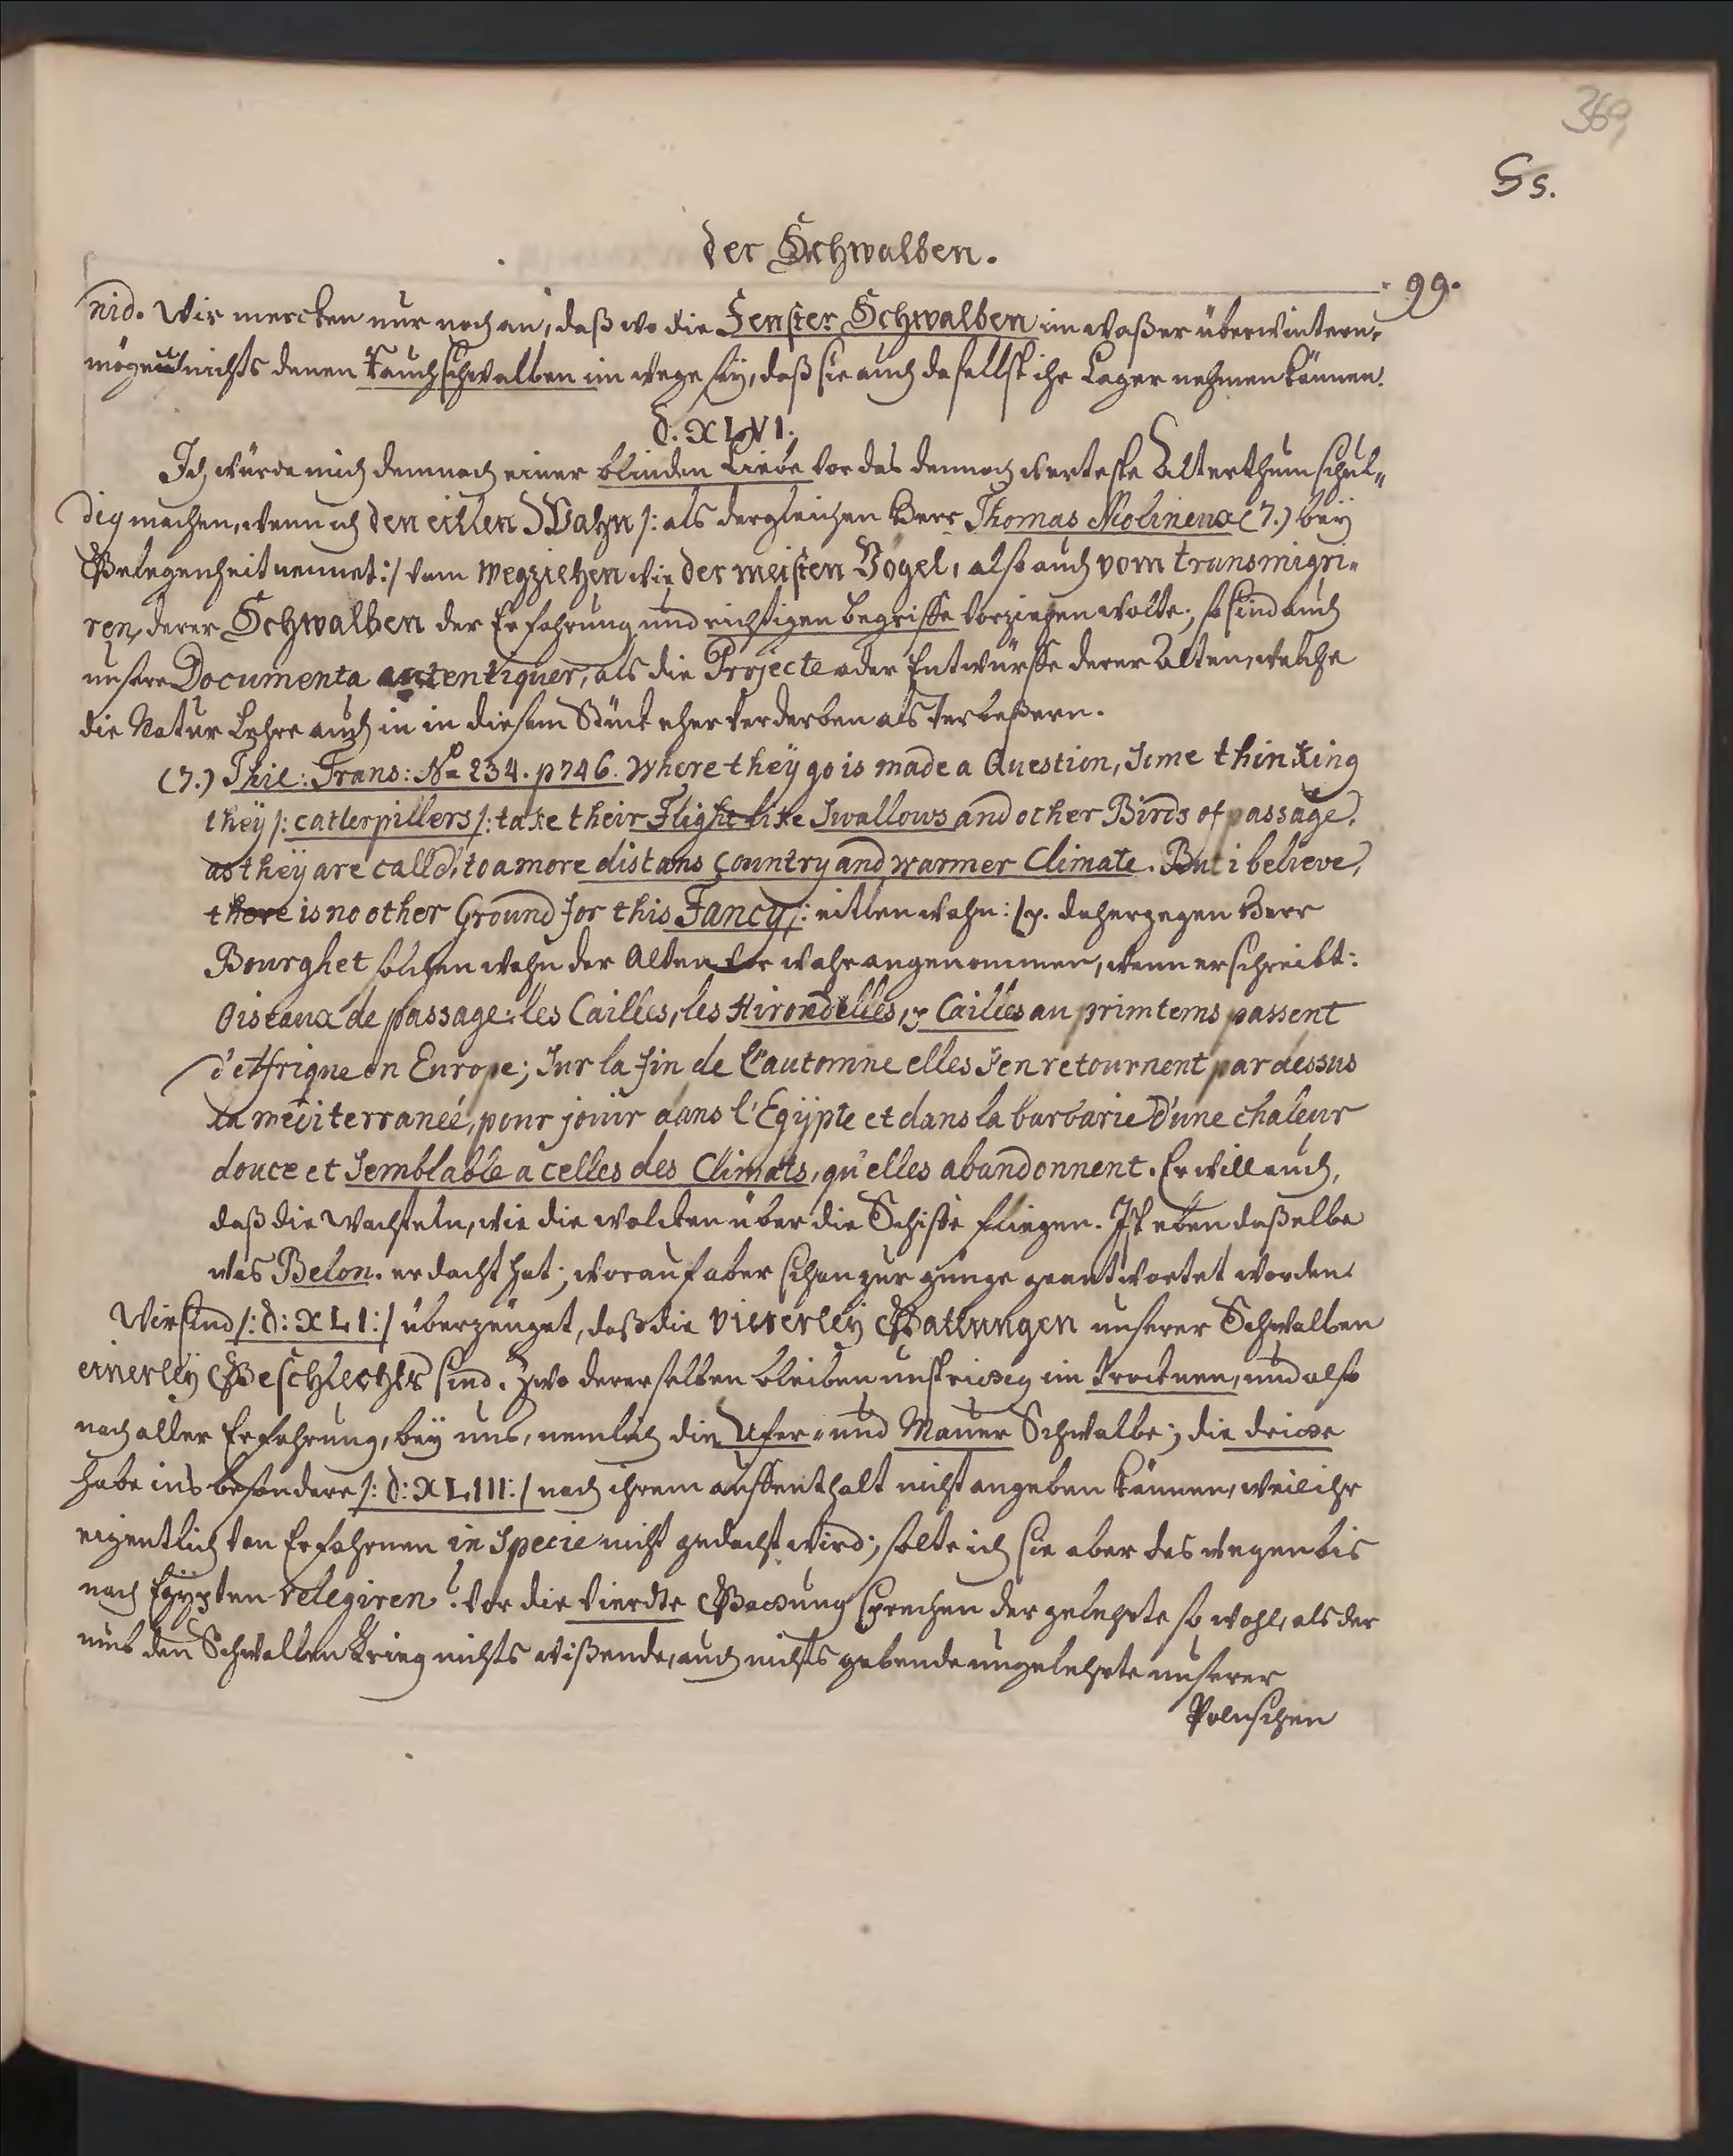 369
Ss.
der Schwalben.
99.
nid. Wir mercken nur noch an, daß wo die Fenster Schwalben im Waßer überwintern,
mögen nichts denen Rauchschwalben im wege seÿ, daß sie auch daselbst ihr Lager nehmen können.
§. XLVI.
Ich würde mich demnach einer blinden Liebe vor das dennoch wertheste Alterthum schul„
dig machen, wenn ich den eitlen Wahn /: als dergleichen Herr Thomas Molineux (7.) beÿ
Gelegenheit nennet :/ vom wegziehen wie der meisten Vögel, also auch vom transmigri„
ren, derer Schwalben der Erfahrung und richtigen begriffe vorziehen wolte; so sind auch
unsere Documenta autentiquer, als die Projecte oder Entwürffe derer Alten, welche
die Natur Lehre auch in in diesem Stück eher verderben als verbeßern.
(7.) Phil: Trans: No 234. p 746. Where theÿ go is made a Question, some thinking
theÿ /: catlerpillers /: take their Flight like Swallows and other Birds of passage,
as theÿ are call'd, to a more distans Country and warmer Climate. But i believe,
there is no other Ground for this Fancy /: eitlen wahn: / p. dahergegen Herr
Bourghet solchen wahn der Alten vor wahr angenommen, wenn er schreibt:
Oiseaux de passage: les Cailles, les Hirondelles, & Cailles au printems passent
d'Affrique en Europe; sur la fin de l'automne elles s'en retournent par dessus
la mediterraneé, pour joüir dans l'Egÿpte et dans la barbarie d'une chaleur
douce et semblable a celles des Climats, qu'elles abandonnent. Er will auch,
daß die Wachteln, wie die wolcken über die Schiffe fliegen. Ist eben daßelbe
was Belon. erdacht hat; worauf aber schon zur gnüge geantwortet worden.
Wir sind /: §: XLI :/ überzeüget, daß die viererleÿ Gattungen unserer Schwalben
einerleÿ Geschlechts sind. Zwo dererselben bleiben unstrittig im trocknen, und also
nach aller Erfahrung, beÿ uns, nemlich die Ufer- und Mauer Schwalbe; die dritte
habe ins besondere /: §: XLIII :/ nach ihrem auffenthalt nicht angeben können, weil ihr
eigentlich von Erfahrnen in specie nicht gedacht wird; solte ich sie aber deswegen bis
nach Egÿpten relegiren? Vor die vierdte Gattung sprechen der gelehrte so wohl, als der
umb den Schwalben Krieg nichts wißende, auch nichts gebende ungelehrte unserer
Polnischen